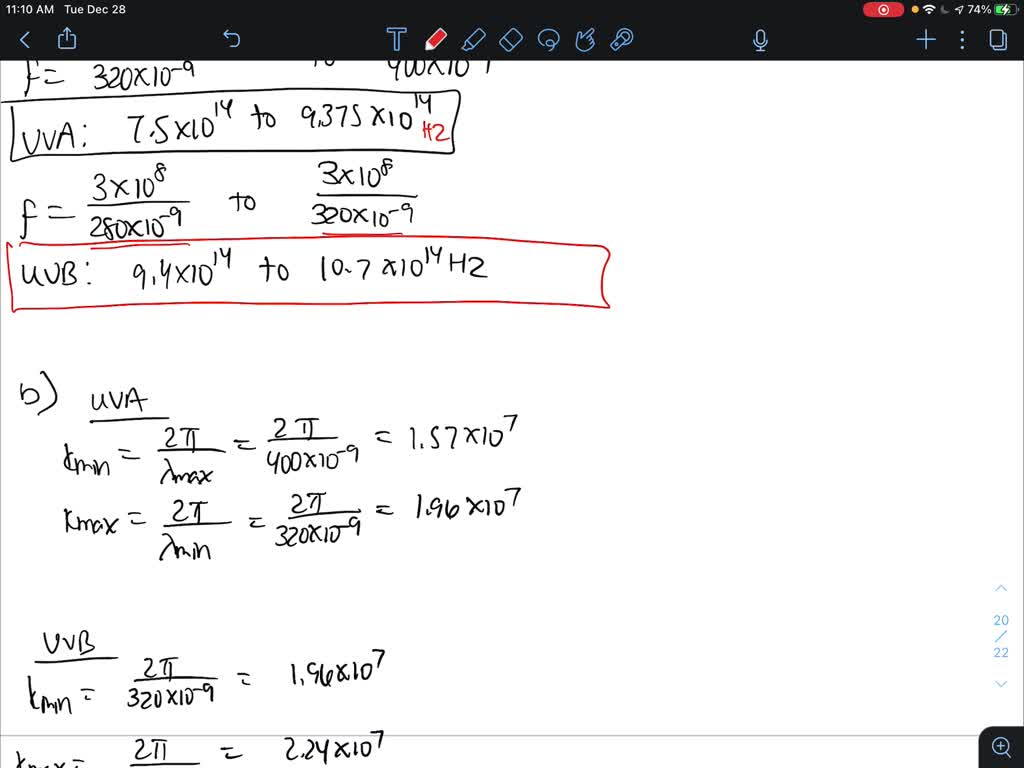 11:10 AM Tue Dec 28 74%
f = 320×10⁻⁹ to 400×10⁻⁹
UVA: 7.5×10¹⁴ to 9.375×10¹⁴ HZ
f = 3×10⁸ / 280×10⁻⁹ to 3×10⁸ / 320×10⁻⁹
UVB: 9.4×10¹⁴ to 10.7×10¹⁴ HZ
b) UVA
kmin = 2π / λmax = 2π / 400×10⁻⁹ = 1.57×10⁷
kmax = 2π / λmin = 2π / 320×10⁻⁹ = 1.96×10⁷
UVB
kmin = 2π / 320×10⁻⁹ = 1.96×10⁷
kmax = 2π = 2.24×10⁷
20 / 22